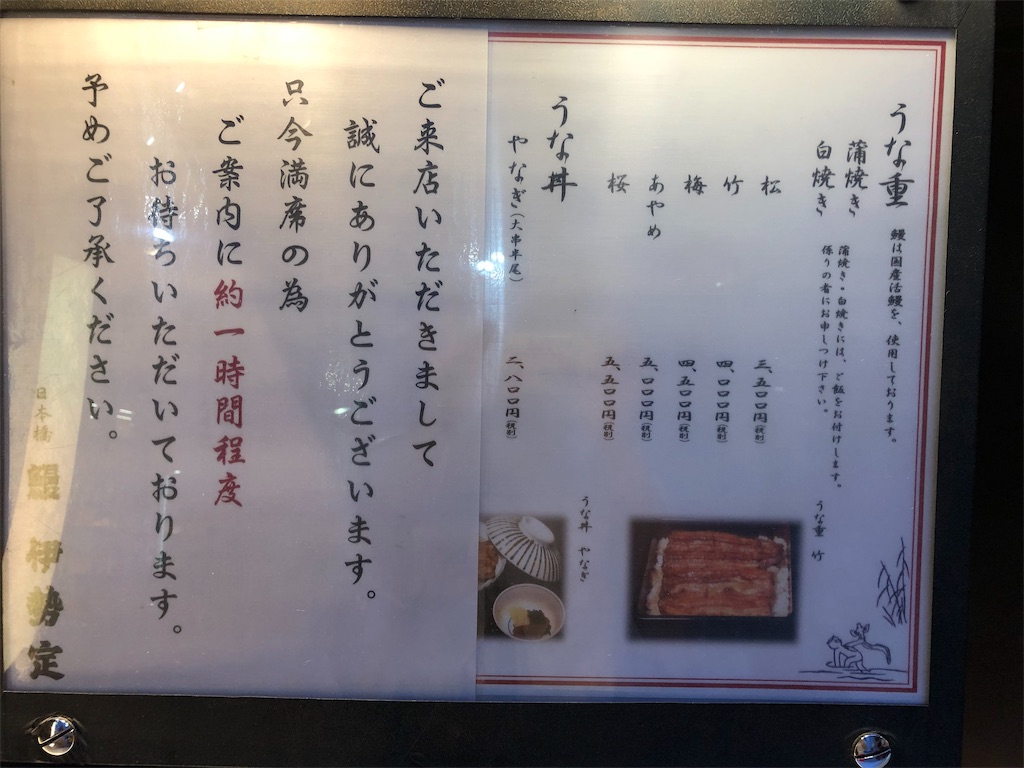 うな重
鰻は国産活鰻を、使用しております。
蒲焼き
白焼き
蒲焼き・白焼きには、ご飯をお付けします。
係りの者にお申しつけ下さい。
松 三、五〇〇円(税別)
竹 四、〇〇〇円(税別)
梅 四、五〇〇円(税別)
あやめ 五、〇〇〇円(税別)
桜 五、五〇〇円(税別)
うな丼
やなぎ(大串半尾) 二、八〇〇円(税別)
うな重 竹
うな丼 やなぎ
ご来店いただきまして
誠にありがとうございます。
只今満席の為
ご案内に約一時間程度
お待ちいただいております。
予めご了承ください。
日本橋 鰻 伊勢定